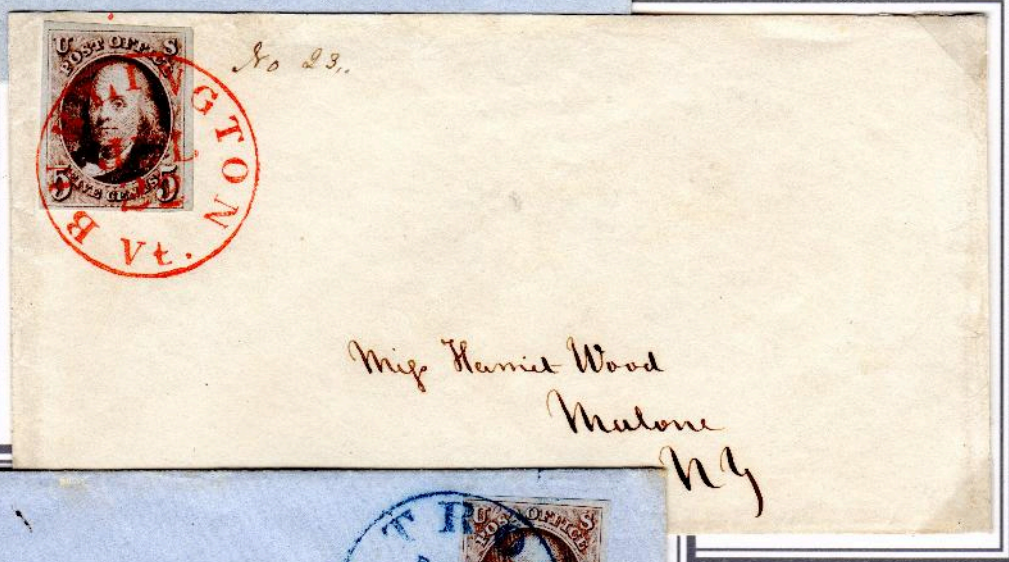 U S
POST OFFICE
5 5
FIVE CENTS
BURLINGTON
JUL
Vt.
No 23,,
Miss Harriet Wood
Malone
NY
U S
POST OFFICE
TRO